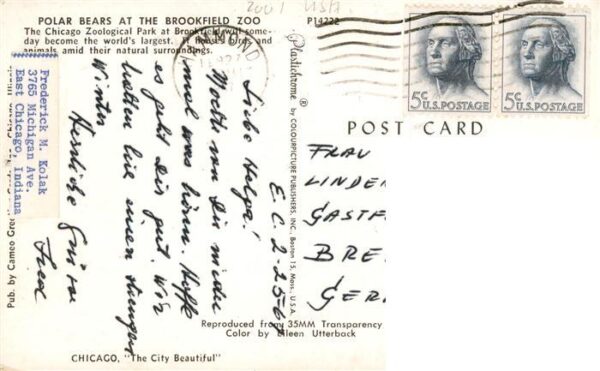 2001 USA
POLAR BEARS AT THE BROOKFIELD ZOO P14222
The Chicago Zoological Park at Brookfield will some-
day become the world's largest. It houses birds and
animals amid their natural surroundings.
5¢ U.S. POSTAGE
5¢ U.S. POSTAGE
Frederick M. Kolak
3765 Michigan Ave.
East Chicago, Indiana
Plastichrome ® by COLOURPICTURE PUBLISHERS, INC., Boston 15, Mass., U.S.A.
POST CARD
E. C. 2-25-64
Liebe Helga!
Möchte von Dir wieder
mal was hören. Hoffe
es geht Dir gut. Wir
hatten hier einen strengen
Winter.
Herzliche Grüsse
Fred
FRAU
LINDE
GASTF
BRE
GER
Pub. by Cameo Gre
Reproduced from 35MM Transparency
Color by Eileen Utterback
CHICAGO, "The City Beautiful"